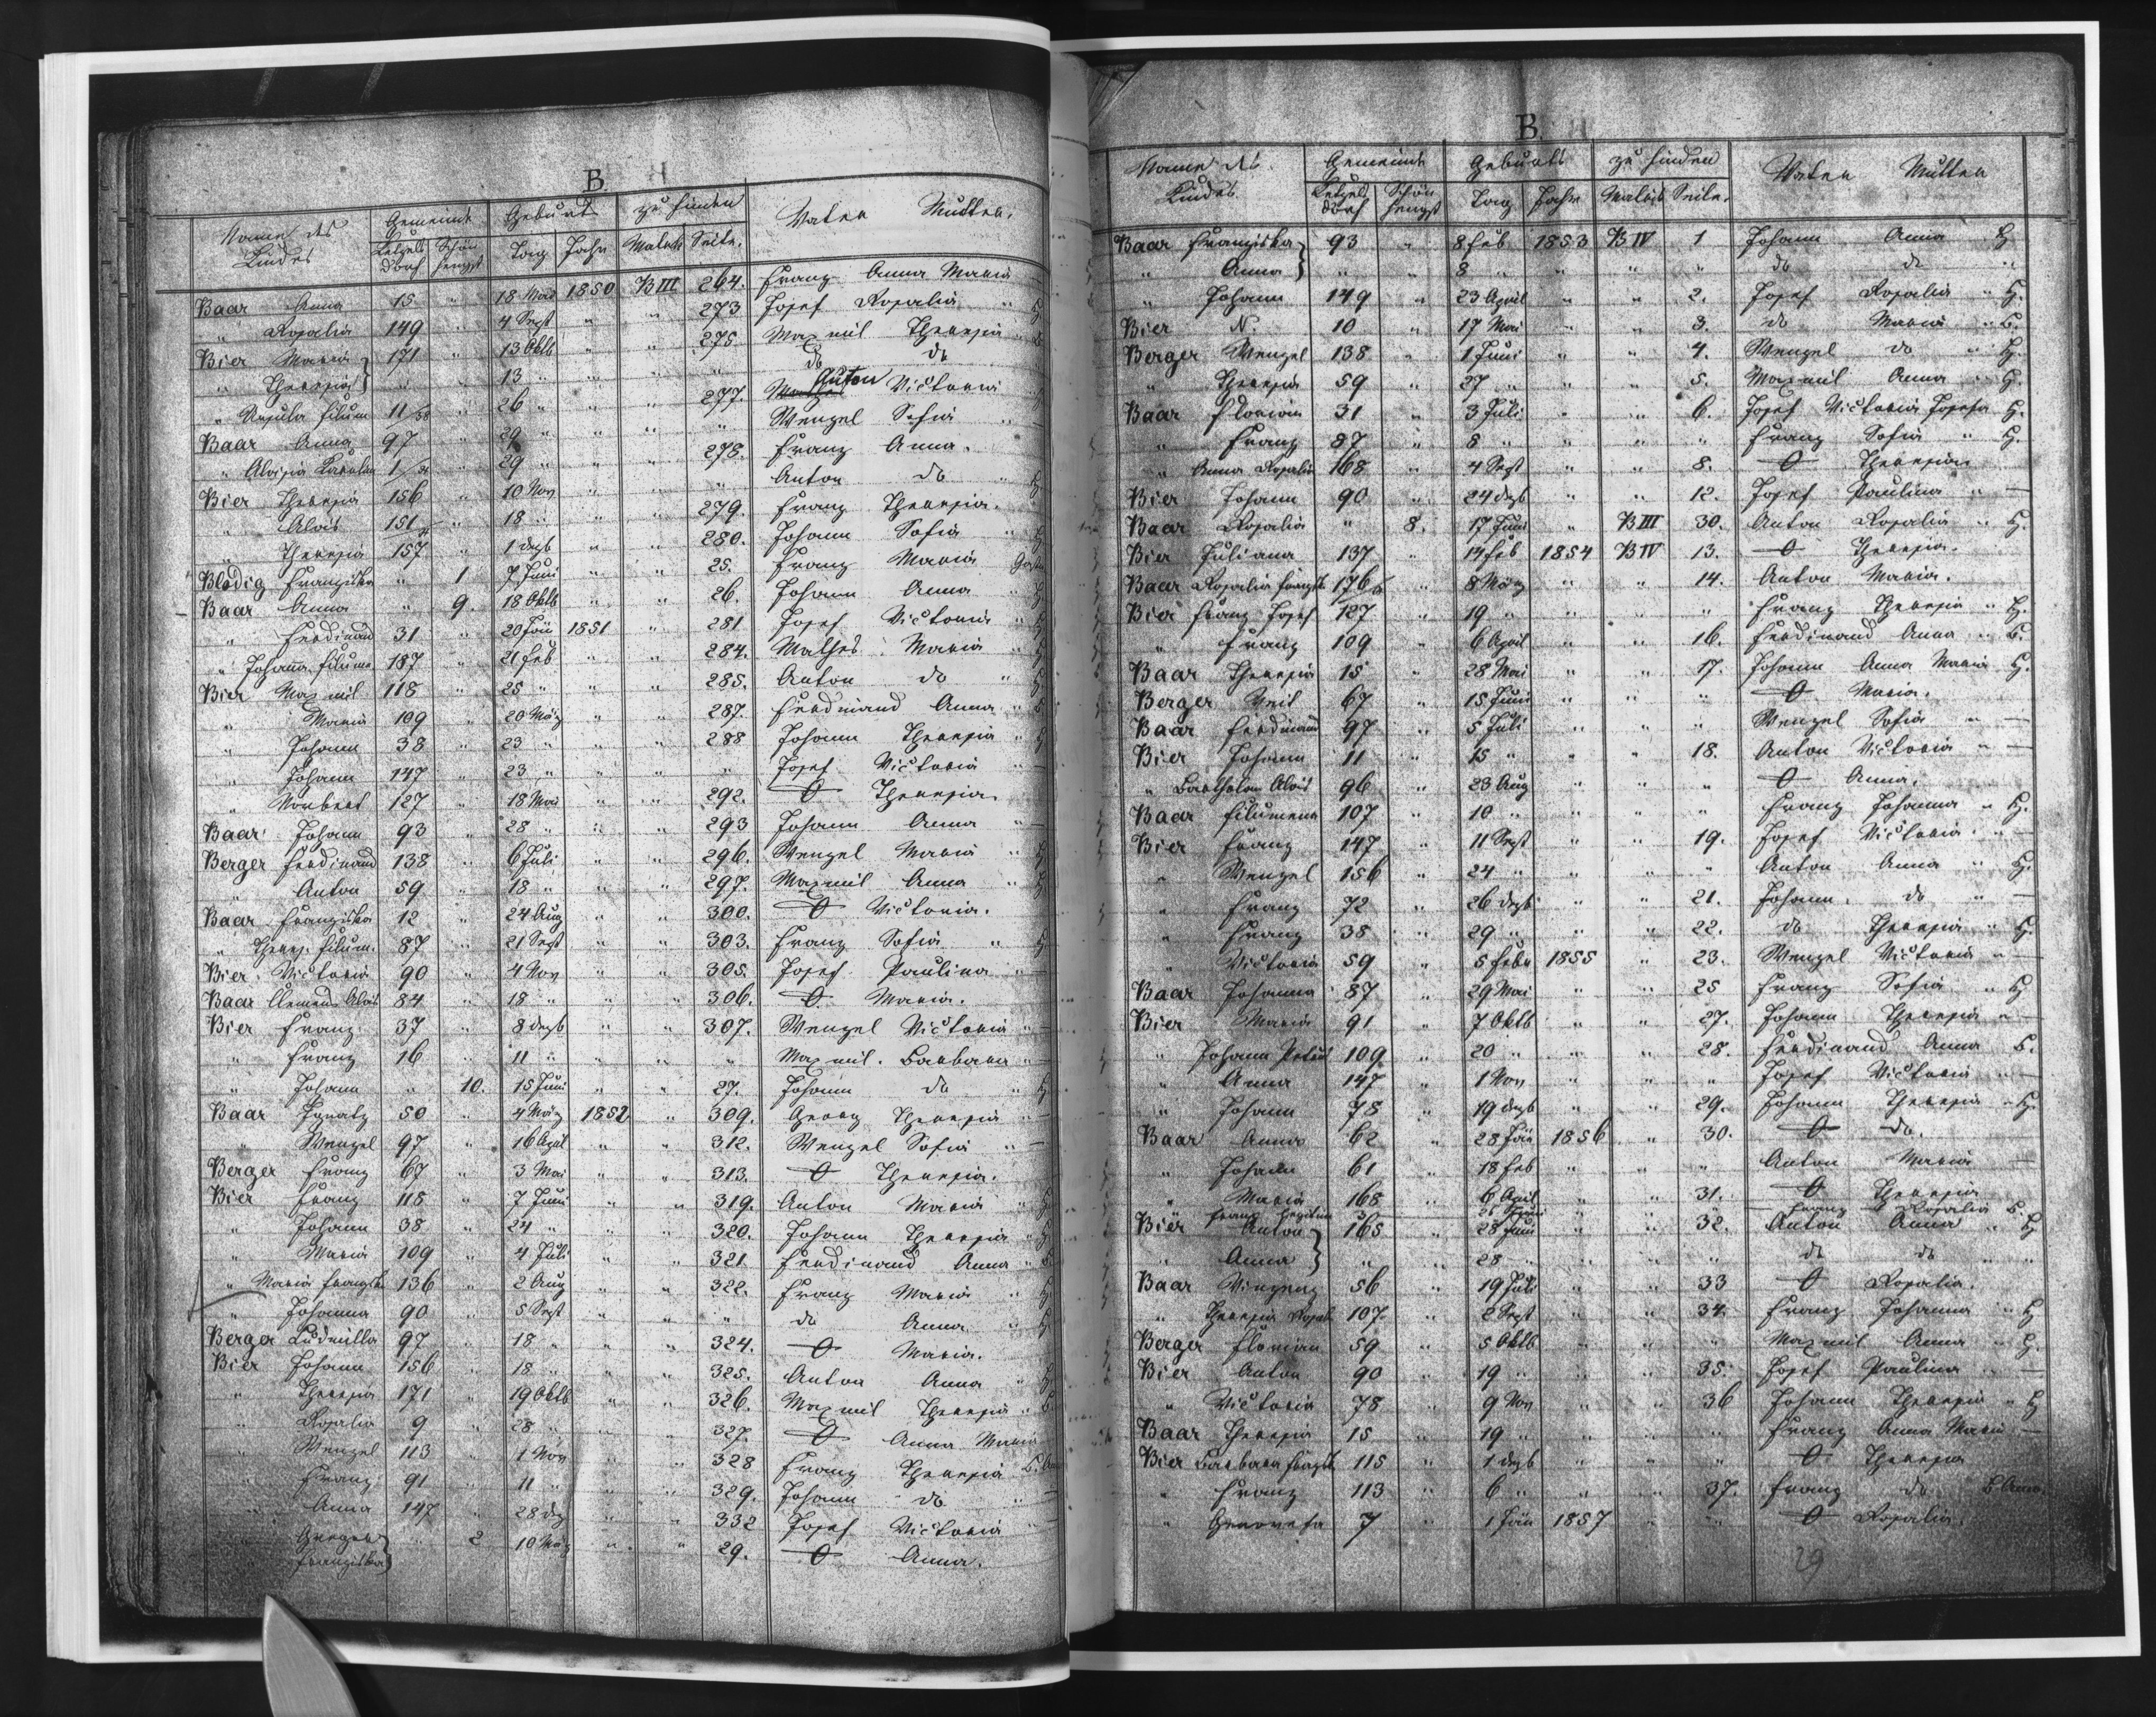 B.
Name des Kindes Gemeinde Ketzelsdorf Schönhengst Geburts Tag Jahr zu finden Matrik Seite. Vater Mutter.
Baar Anna 15 " 18 Mai 1850 B III 264. Franz Anna Maria
" Rosalia 149 " 4 Sept " " 273 Josef Rosalia " H.
Bier Maria } 171 " 13 Oktb " " 275. Maxmil Theresia "
" Theresia } " " 13 " " " " do do
" Ursula Filum 11/58 " 26 " " " 277. Anton Victoria
Baar Anna 97 " 29 " " " " Wenzel Sofia " —
" Aloisia 1/ " 29 " " " 278. Franz Anna.
Bier Theresia 156 " 10 Nov " " " Anton do " H
" Alois 151 " 18 " " " 279. Franz Theresia.
" Theresia 157 " 1 dezb " " 280. Johann Sofia " H
Blodig Franziska " 1 7 Juni " " 25. Franz Maria
Baar Anna " 9. 18 Oktb " " 26. Johann Anna " H
" Ferdinand 31 " 20 Jän 1851 " 281 Josef Victoria " H
" Johanna Filume 187 " 21 Feb " " 284. Mathes Maria " H
Bier Maxmil 118 " 25 " " " 285. Anton do " H
" Maria 109 " 20 März " " 287. Ferdinand Anna " B
" Johann 38 " 23 " " " 288 Johann Theresia " H
" Johann 147 " 23 " " " " Josef Victoria " —
" Norbert 127 " 18 Mai " " 292. O Theresia.
Baar Johann 93 " 28 " " " 293 Johann Anna " —
Berger Ferdinand 138 " 6 Juli " " 296. Wenzel Maria " H
" Anton 59 " 18 " " " 297. Maxmil Anna " H
Baar Franziska 12 " 24 Aug " " 300. O Victoria.
" Theres. Filum. 87 " 21 Sept " " 303. Franz Sofia " H
Bier Victoria 90 " 4 Nov " " 305. Josef Paulina " —
Baar Clemens Alois 84 " 18 " " " 306. O Maria.
Bier Franz 37 " 8 dezb " " 307. Wenzel Victoria " —
" Franz 16 " 11 " " " " Maxmil. Barbara " —
" Johann " 10. 15 Juni " " 27. Johann do " H
Baar Ignatz 50 " 4 März 1852 " 309. Georg Theresia " —
" Wenzel 97 " 16 April " " 312. Wenzel Sofia " —
Berger Franz 67 " 3 Mai " " 313. O Theresia.
Bier Franz 118 " 7 Juni " " 319. Anton Maria " H
" Johann 38 " 24 " " " 320. Johann Theresia " H
" Maria 109 " 4 Juli " " 321 Ferdinand Anna " B
" Maria Franziska 136 " 2 Aug " " 322. Franz Maria " H
" Johanna 90 " 5 Sept " " " do Anna " H
Berger Ludmilla 97 " 18 " " " 324. O Maria.
Bier Johann 156 " 18 " " " 325. Anton Anna " H
" Theresia 171 " 19 Oktb " " 326. Maxmil Theresia " B.
" Rosalia 9 " 28 " " " 327. O Anna Maria
" Wenzel 113 " 1 Nov " " 328 Franz Theresia B.
" Franz 91 " 11 " " " 329. Johann do " —
" Anna 147 " 28 dez " " 332 Josef Victoria " —
" Franziska } " 2 10 März " " 29. O Anna.
B.
Name des Kindes Gemeinde Ketzelsdorf Schönhengst Geburts Tag Jahr zu finden Matrik Seite. Vater Mutter
Baar Franziska } 93 " 8 Feb 1853 B IV 1 Johann Anna " H
" Anna } " " 8 " " " " do do "
" Johann 149 " 23 April " " 2. Josef Rosalia " H.
Bier N. 10 " 17 Mai " " 3. do Maria " B.
Berger Wenzel 138 " 1 Juni " " 4. Wenzel do " H.
" Theresia 59 " 27 " " " 5. Maxmil Anna " H.
Baar Florian 31 " 3 Juli " " 6. Josef Victoria Josefa H.
" Franz 87 " 8 " " " " Franz Sofia " H.
" Anna Rosalia 168 " 4 Sept " " 8. O Theresia
Bier Johann 90 " 24 dezb " " 12. Josef Paulina " —
Baar Rosalia " 8. 17 Juni " B III 30. Anton Rosalia " H.
Bier Juliana 137 " 14 Feb 1854 B IV 13. O Theresia.
Baar Rosalia Franziska 176 " 8 März " " 14. Anton Maria.
Bier Franz Josef 127 " 19 " " " " Franz Theresia " H.
" Franz 109 " 6 April " " 16. Ferdinand Anna " B.
Baar Theresia 15 " 28 Mai " " 17. Johann Anna Maria H.
Berger Veit 67 " 15 Juni " " " O Maria.
Baar Ferdinand 97 " 5 Juli " " " Wenzel Sofia " —
Bier Johann 11 " 15 " " " 18. Anton Victoria " —
" Bartholom Alois 96 " 23 Aug " " " O Anna.
Baar Filumena 107 " 10 " " " " Franz Johanna " H.
Bier Franz 147 " 11 Sept " " 19. Josef Victoria " —
" Wenzel 156 " 24 " " " " Anton Anna " H.
" Franz 72 " 26 dezb " " 21. Johann. do " —
" Franz 38 " 29 " " " 22. do Theresia " H.
" Victoria 59 " 5 Febr 1855 " 23. Wenzel Victoria " —
Baar Johanna 87 " 29 Mai " " 25 Franz Sofia " H
Bier Maria 91 " 7 Oktb " " 27. Johann Theresia " —
" Johann 109 " 20 " " " 28. Ferdinand Anna B.
" Anna 147 " 1 Nov " " " Josef Victoria " —
" Johann 78 " 19 dezb " " 29. Johann Theresia " H.
Baar Anna 62 " 28 Jän 1856 " 30. O do.
" Johann 61 " 18 Feb " " " Anton Maria —
" Maria 168 " 6 April " " 31. O Theresia
Franz 3 " " " Franz Rosalia B.
Bier Anton } 165 " 28 Juni " " 32. Anton Anna " H
" Anna } " " 28 " " " " do do " "
Baar Vinzenz 56 " 19 Juli " " 33 O Rosalia.
" Theresia Rosal 107. " 2 Sept " " 34. Franz Johanna " H
Berger Florian 59 " 5 Oktb " " " Maxmil Anna " H.
Bier Anton 90 " 19 " " " 35. Josef Paulina " —
" Victoria 78 " 9 Nov " " 36 Johann Theresia " H
Baar Theresia 15 " 19 " " " " Franz Anna Maria —
Bier Barbara Franziska 115 " 1 dezb " " " O Theresia
" Franz 113 " 6 " " " 37. Franz do B
" Genovefa 7 " 1 Jän 1857 " " O Rosalia.
29